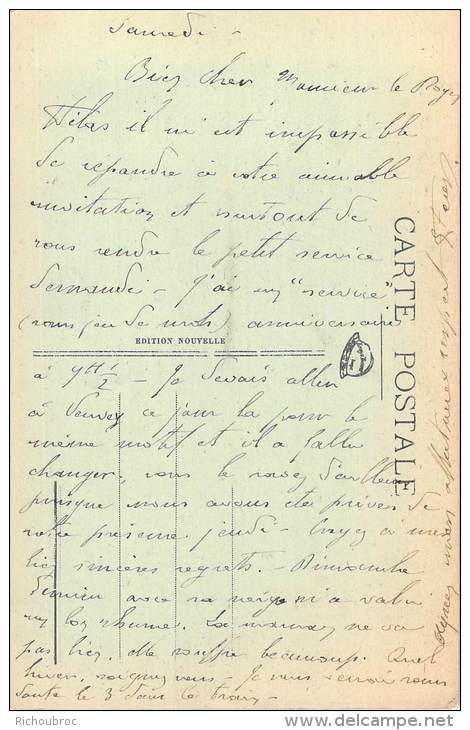 Samedi -
Bien cher Monsieur le Royer
Hélas il m'est impossible
de répondre à votre aimable
invitation et surtout de
vous rendre le petit service
demandé - J'ai un "service"
(sans jeu de mots) anniversaire
EDITION NOUVELLE
à 9H 1/2 - Je devais aller
à ce jour là pour le
même motif et il a fallu
changer, vous le savez d'ailleurs
puisque nous avons été privés de
votre présence jeudi - Croyez à mes
bien sincères regrets. - Dimanche
dernier avec sa neige m'a valu
un bon rhume. La maman ne va
pas bien, elle souffre beaucoup. Quel
hiver, soignez vous - Je vous
le 3 dans le train -
CARTE POSTALE
mon affectueux respect
Richoubroc
www.delcampe.net